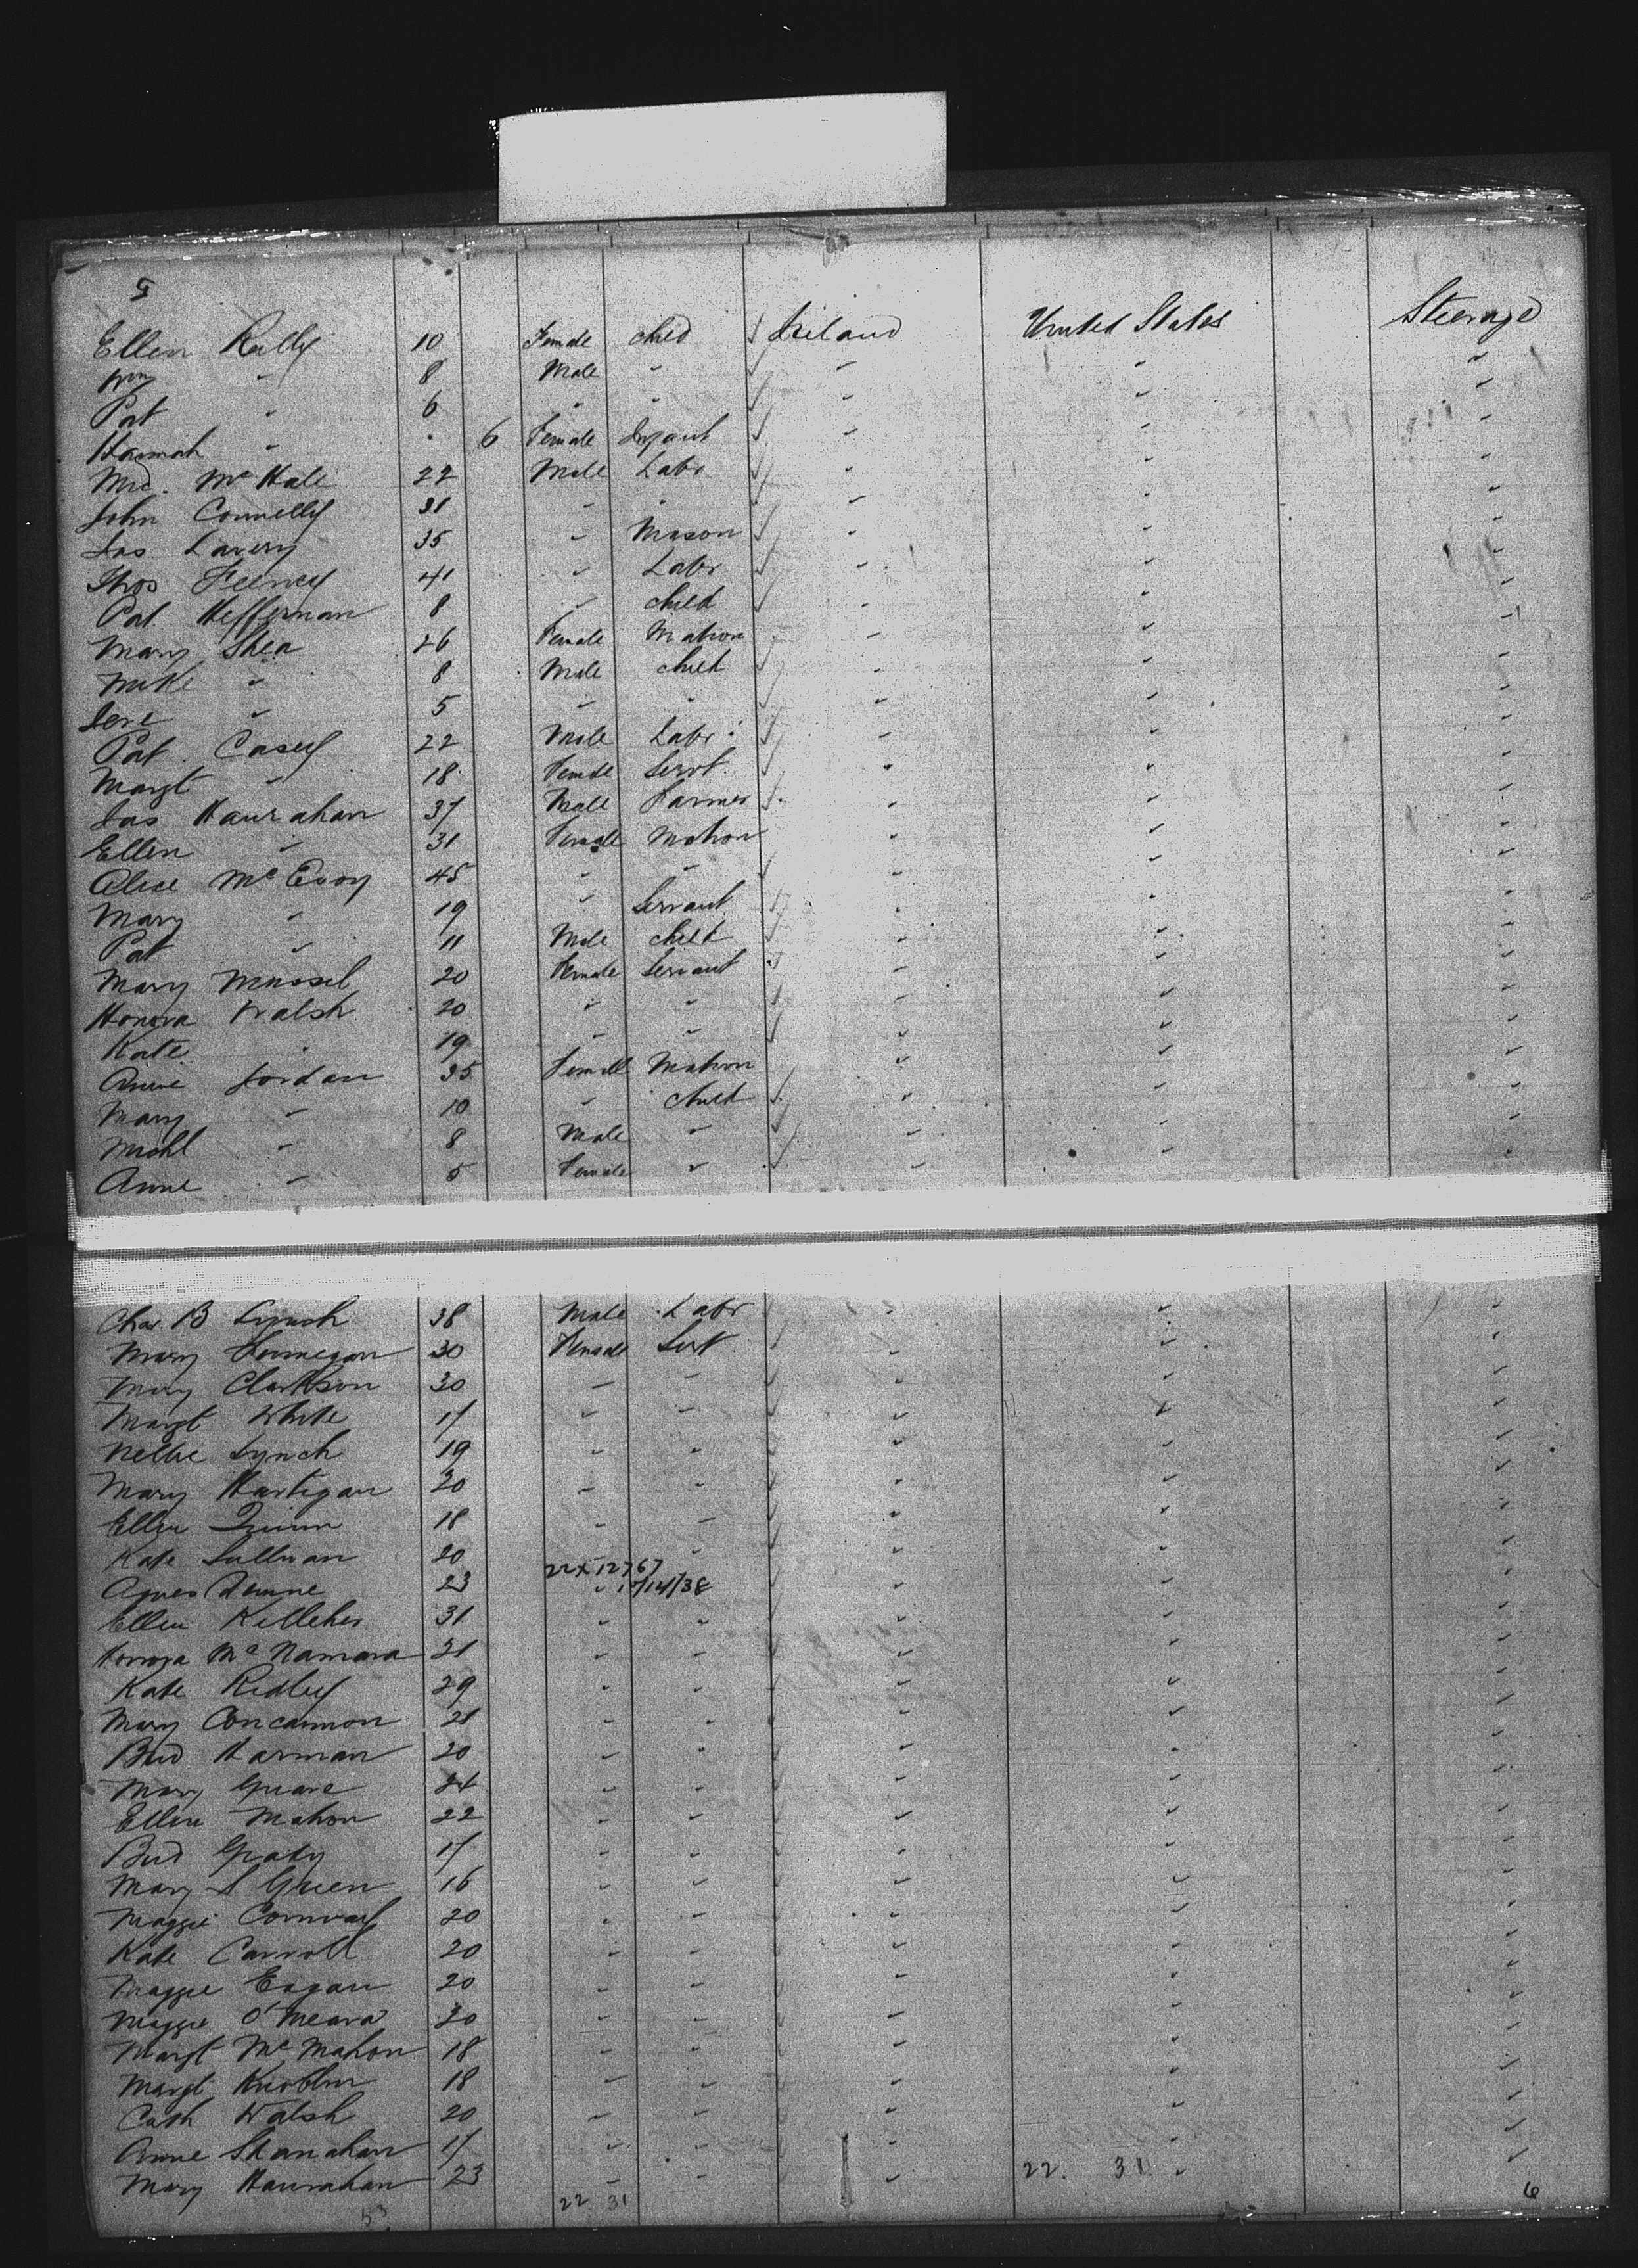 5
Ellen Reilly 10 Female Child Ireland United States Steerage
Wm " 8 Male " " " "
Pat " 6 " " " " "
Hannah " 6 Female Infant " " "
Mc Hale 22 Male Labr " " "
John Connelly 31 " " " " "
Jas Lavery 35 " Mason " " "
Thos Feeney 41 " Labr " " "
Pat Heffernan 8 " Child " " "
Mary Shea 26 Female Matron " " "
Mike " 8 Male Child " " "
Jere " 5 " " " " "
Pat Casey 22 Male Labr " " "
Margt " 18 Female Servt " " "
Jas Hanrahan 37 Male Farmer " " "
Ellen " 31 Female Matron " " "
Alice McEvoy 45 " " " " "
Mary " 19 " Servant " " "
Pat " 11 Male Child " " "
Mary 20 Female Servant " " "
Honora Walsh 20 " " " " "
Kate " 19 " " " " "
Annie Jordan 35 Female Matron " " "
Mary " 10 " Child " " "
Michl " 8 Male " " " "
Anne " 5 Female " " " "
Chas. B Lynch 38 Male Labr " " "
Mary 30 Female Sert " " "
Mary Clarkson 30 " " " " "
Margt White 17 " " " " "
Nellie Lynch 19 " " " " "
Mary Hartigan 20 " " " " "
Ellen Quinn 18 " " " " "
Kate Sullivan 20 " " " " "
22X12767
Agnes 23 " /14/38 " " "
Ellen Kelleher 31 " " " " "
Honora McNamara 21 " " " " "
Kate Ridley 29 " " " " "
Mary Concannon 21 " " " " "
Brid Harman 20 " " " " "
Mary 24 " " " " "
Ellen Mahon 22 " " " " "
Brid Grady 17 " " " " "
Mary S Green 16 " " " " "
Maggie Conway 20 " " " " "
Kate Carroll 20 " " " " "
Maggie Eagan 20 " " " " "
Maggie O'Meara 20 " " " " "
Margt McMahon 18 " " " " "
Margt 18 " " " " "
Cath Walsh 20 " " " " "
Anne Shanahan 17 " " " " "
Mary Hanrahan 23 " " " 22. 31 " "
53 22 31 6